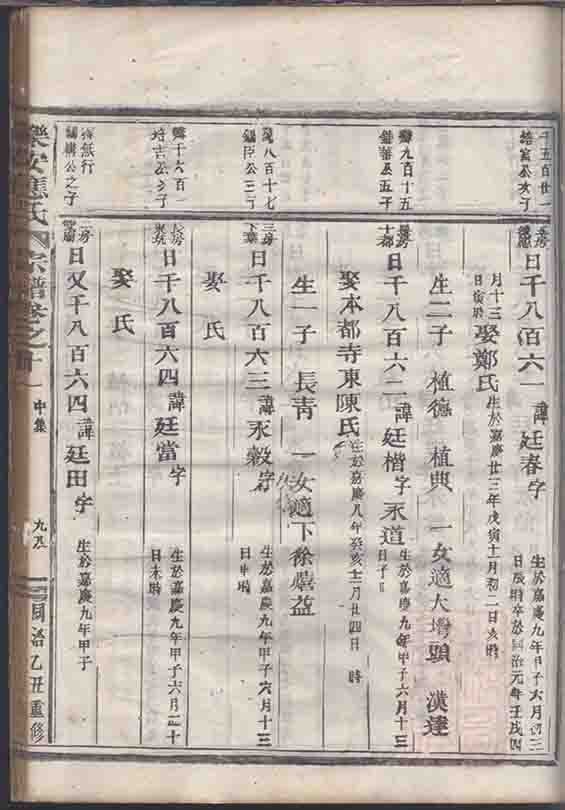 日千八百六一 諱廷春字 生於嘉慶九年甲子六月初三
日辰時卒於同治元年壬戌四
月十三
日寅時 娶鄭氏 生於嘉慶廿三年戊寅十一月初二日亥時
生二子 植德 植典 一女適大灣頭 漢達
鑑九百十五
日千八百六二 諱廷楷字永道 生於嘉慶九年甲子六月十三
日子時
娶本都寺東陳氏 生於嘉慶八年癸亥十二月廿四日 時
生一子 長青 一女適下徐熺益
八百十七
錫臣公三子
三房
下葉
日千八百六三 諱永穀字 生於嘉慶九年甲子六月十三
日申時
娶氏
千六百一
培吉公之子
長房
日千八百六四 諱廷當字 生於嘉慶九年甲子六月二十
日未時
娶氏
無行
公之子
日又千八百六四 諱廷田字 生於嘉慶九年甲子
樂安應氏 宗譜卷之十
中集
同治乙丑重修